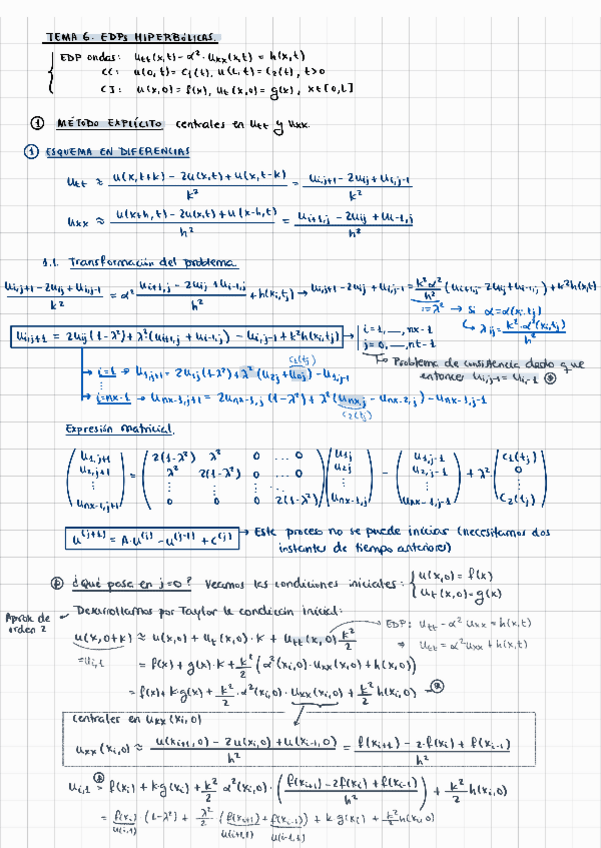 TEMA 6. EDPs HIPERBÓLICAS.
EDP ondas: u_tt(x,t) - α²·u_xx(x,t) = h(x,t)
CC: u(0,t) = c₁(t), u(L,t) = c₂(t), t>0
CI: u(x,0) = f(x), u_t(x,0) = g(x), x∈[0,L]
① MÉTODO EXPLÍCITO centrales en u_tt y u_xx.
① ESQUEMA EN DIFERENCIAS
u_tt ≈ (u(x,t+k) - 2u(x,t) + u(x,t-k))/k² = (u_i,j+1 - 2u_ij + u_i,j-1)/k²
u_xx ≈ (u(x+h,t) - 2u(x,t) + u(x-h,t))/h² = (u_i+1,j - 2u_ij + u_i-1,j)/h²
1.1. Transformación del problema
(u_i,j+1 - 2u_ij + u_i,j-1)/k² = α² (u_i+1,j - 2u_ij + u_i-1,j)/h² + h(x_i,t_j) → u_i,j+1 - 2u_ij + u_i,j-1 = k²α²/h² (u_i+1,j - 2u_ij + u_i-1,j) + k²h(x,t)
:= λ² → Si α = α(x_i,t_j)
↳ λ_ij = k²·α²(x_i,t_j)/h²
u_i,j+1 = 2u_ij(1-λ²) + λ²(u_i+1,j + u_i-1,j) - u_i,j-1 + k²h(x_i,t_j) → i=1,...,nx-1
j=0,...,nt-1
→ Problema de consistencia dado que
entonces u_i,j-1 = u_i,-1
c₁(t_j)
→ i=1 → u_1,j+1 = 2u_1j(1-λ²) + λ²(u_2j + u_0j) - u_1,j-1
→ i=nx-1 → u_nx-1,j+1 = 2u_nx-1,j(1-λ²) + λ²(u_nx,j - u_nx-2,j) - u_nx-1,j-1
c₂(t_j)
Expresión matricial.
(u_1,j+1) = (2(1-λ²) λ² 0 ... 0) (u_1j) - (u_1,j-1) + λ² (c₁(t_j))
(u_2,j+1) (λ² 2(1-λ²) 0 ... 0) (u_2j) (u_2,j-1) (0)
⋮
(u_nx-1,j+1) (0 0 0 2(1-λ²)) (u_nx-1,j) (u_nx-1,j-1) (c₂(t_j))
u^(j+1) = A·u^(j) - u^(j-1) + c^(j) → Este proceso no se puede iniciar (necesitamos dos
instantes de tiempo anteriores)
¿Qué pasa en j=0? Veamos las condiciones iniciales: { u(x,0) = f(x)
u_t(x,0) = g(x)
Aprox. de orden 2
Desarrollamos por Taylor la condición inicial:
→ EDP: u_tt - α²u_xx = h(x,t)
⇒ u_tt = α²u_xx + h(x,t)
u(x,0+k) ≈ u(x,0) + u_t(x,0)·k + u_tt(x,0) k²/2
= u_i,1
= f(x) + g(x)·k + k²/2 (α²(x_i,0)·u_xx(x_i,0) + h(x,0))
= f(x) + k·g(x) + k²/2·α²(x_i,0)·u_xx(x_i,0) + k²/2 h(x_i,0)
centrales en u_xx(x_i,0)
u_xx(x_i,0) ≈ (u(x_i+1,0) - 2u(x_i,0) + u(x_i-1,0))/h² = (f(x_i+1) - 2·f(x_i) + f(x_i-1))/h²
u_i,1 = f(x_i) + kg(x_i) + k²/2 α²(x_i,0)·((f(x_i+1) - 2f(x_i) + f(x_i-1))/h²) + k²/2 h(x_i,0)
= f(x_i)(1-λ²) + λ²/2 (f(x_i+1) + f(x_i-1)) + kg(x_i) + k²/2 h(x_i,0)